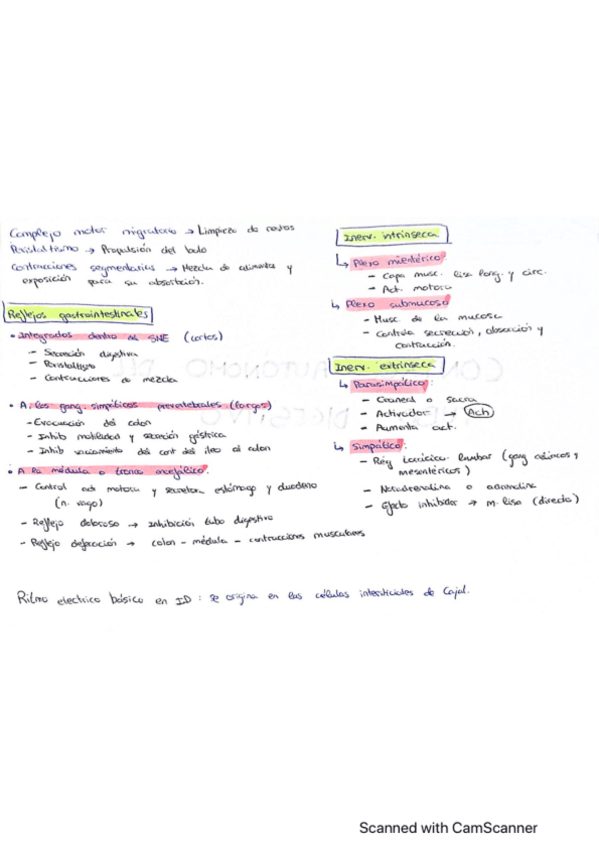 Complejo motor migratorio → Limpieza de restos
Peristaltismo → Propulsión del bolo
Contracciones segmentarias → Mezcla de alimentos y
exposición para su absorción.
Reflejos gastrointestinales
• Integrados dentro del SNE (cortos)
- Secreción digestiva
- Peristaltismo
- Contracciones de mezcla
• A los gang. simpáticos prevertebrales (largos)
- Evacuación del colon
- Inhib motilidad y secreción gástrica
- Inhib vaciamiento del cont del íleo al colon
• A la médula o tronco encefálico:
- Control act motora y secretora estómago y duodeno
(n. vago)
- Reflejo doloroso → Inhibición tubo digestivo
- Reflejo defecación → colon - médula - contracciones musculares
Inerv. intrínseca
↳ Plexo mientérico:
- Capa musc. lisa long. y circ.
- Act. motora
↳ Plexo submucoso
- Musc de la mucosa
- Controla secreción, absorción y
contracción.
Inerv. extrínseca
↳ Parasimpático:
- Craneal o sacra
- Activador → Ach
- Aumenta act.
↳ Simpático:
- Reg lumbar (gang celíacos y
mesentéricos)
- Noradrenalina o adrenalina
- Efecto inhibidor → m. lisa (directo)
Ritmo electrico básico en ID: se origina en las células intersticiales de Cajal.
Scanned with CamScanner